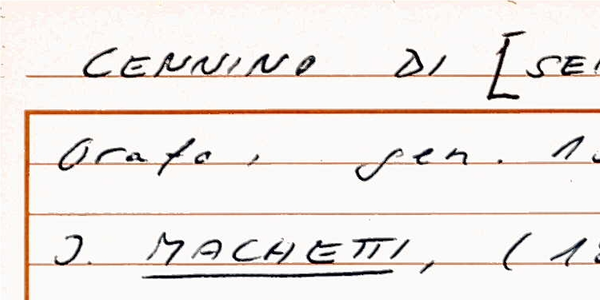 CENNINO DI [SE
Orafo, gen. 1
J. MACHETTI, (1